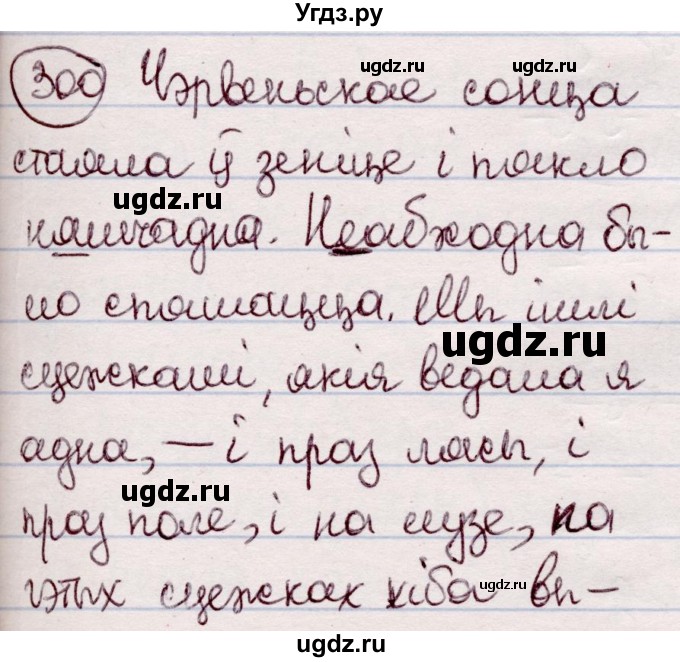 Угдз.ру
ugdz.ru ugdz.ru
300 Чэрвеньскае сонца
стаяла ў зеніце і пякло
ugdz.ru
нашчадна. Неабходна бы-
ло спяшацца. Мы ішлі
ugdz.ru
сцежкамі, якія ведала я
адна, — і праз лясы, і
ugdz.ru
праз поле, і па лузе, па
гэтых сцежках хіба вы-
ugdz.ru
ugdz.ru